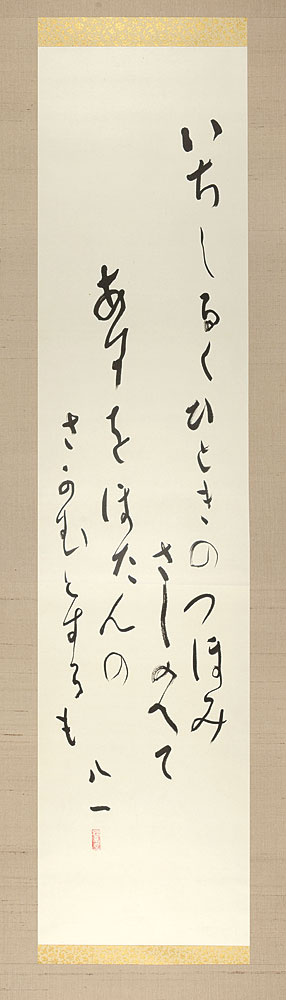 いちしるくひときのつほみ
さしのへて
あすをほたんの
さかむとするも
八一